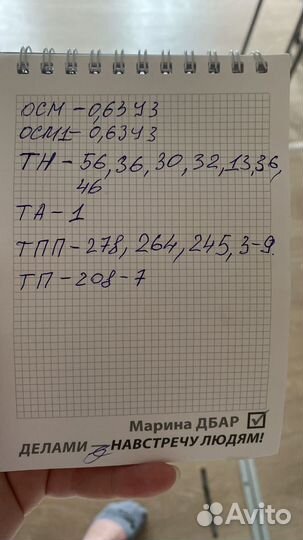 ОСМ - 0,63УЗ
ОСМ1 - 0,63УЗ
ТН - 56, 36, 30, 32, 13, 36,
46
ТА - 1
ТПП - 278, 264, 245, 3-9.
ТП - 208-7
Марина ДБАР
ДЕЛАМИ – НАВСТРЕЧУ ЛЮДЯМ!
Avito